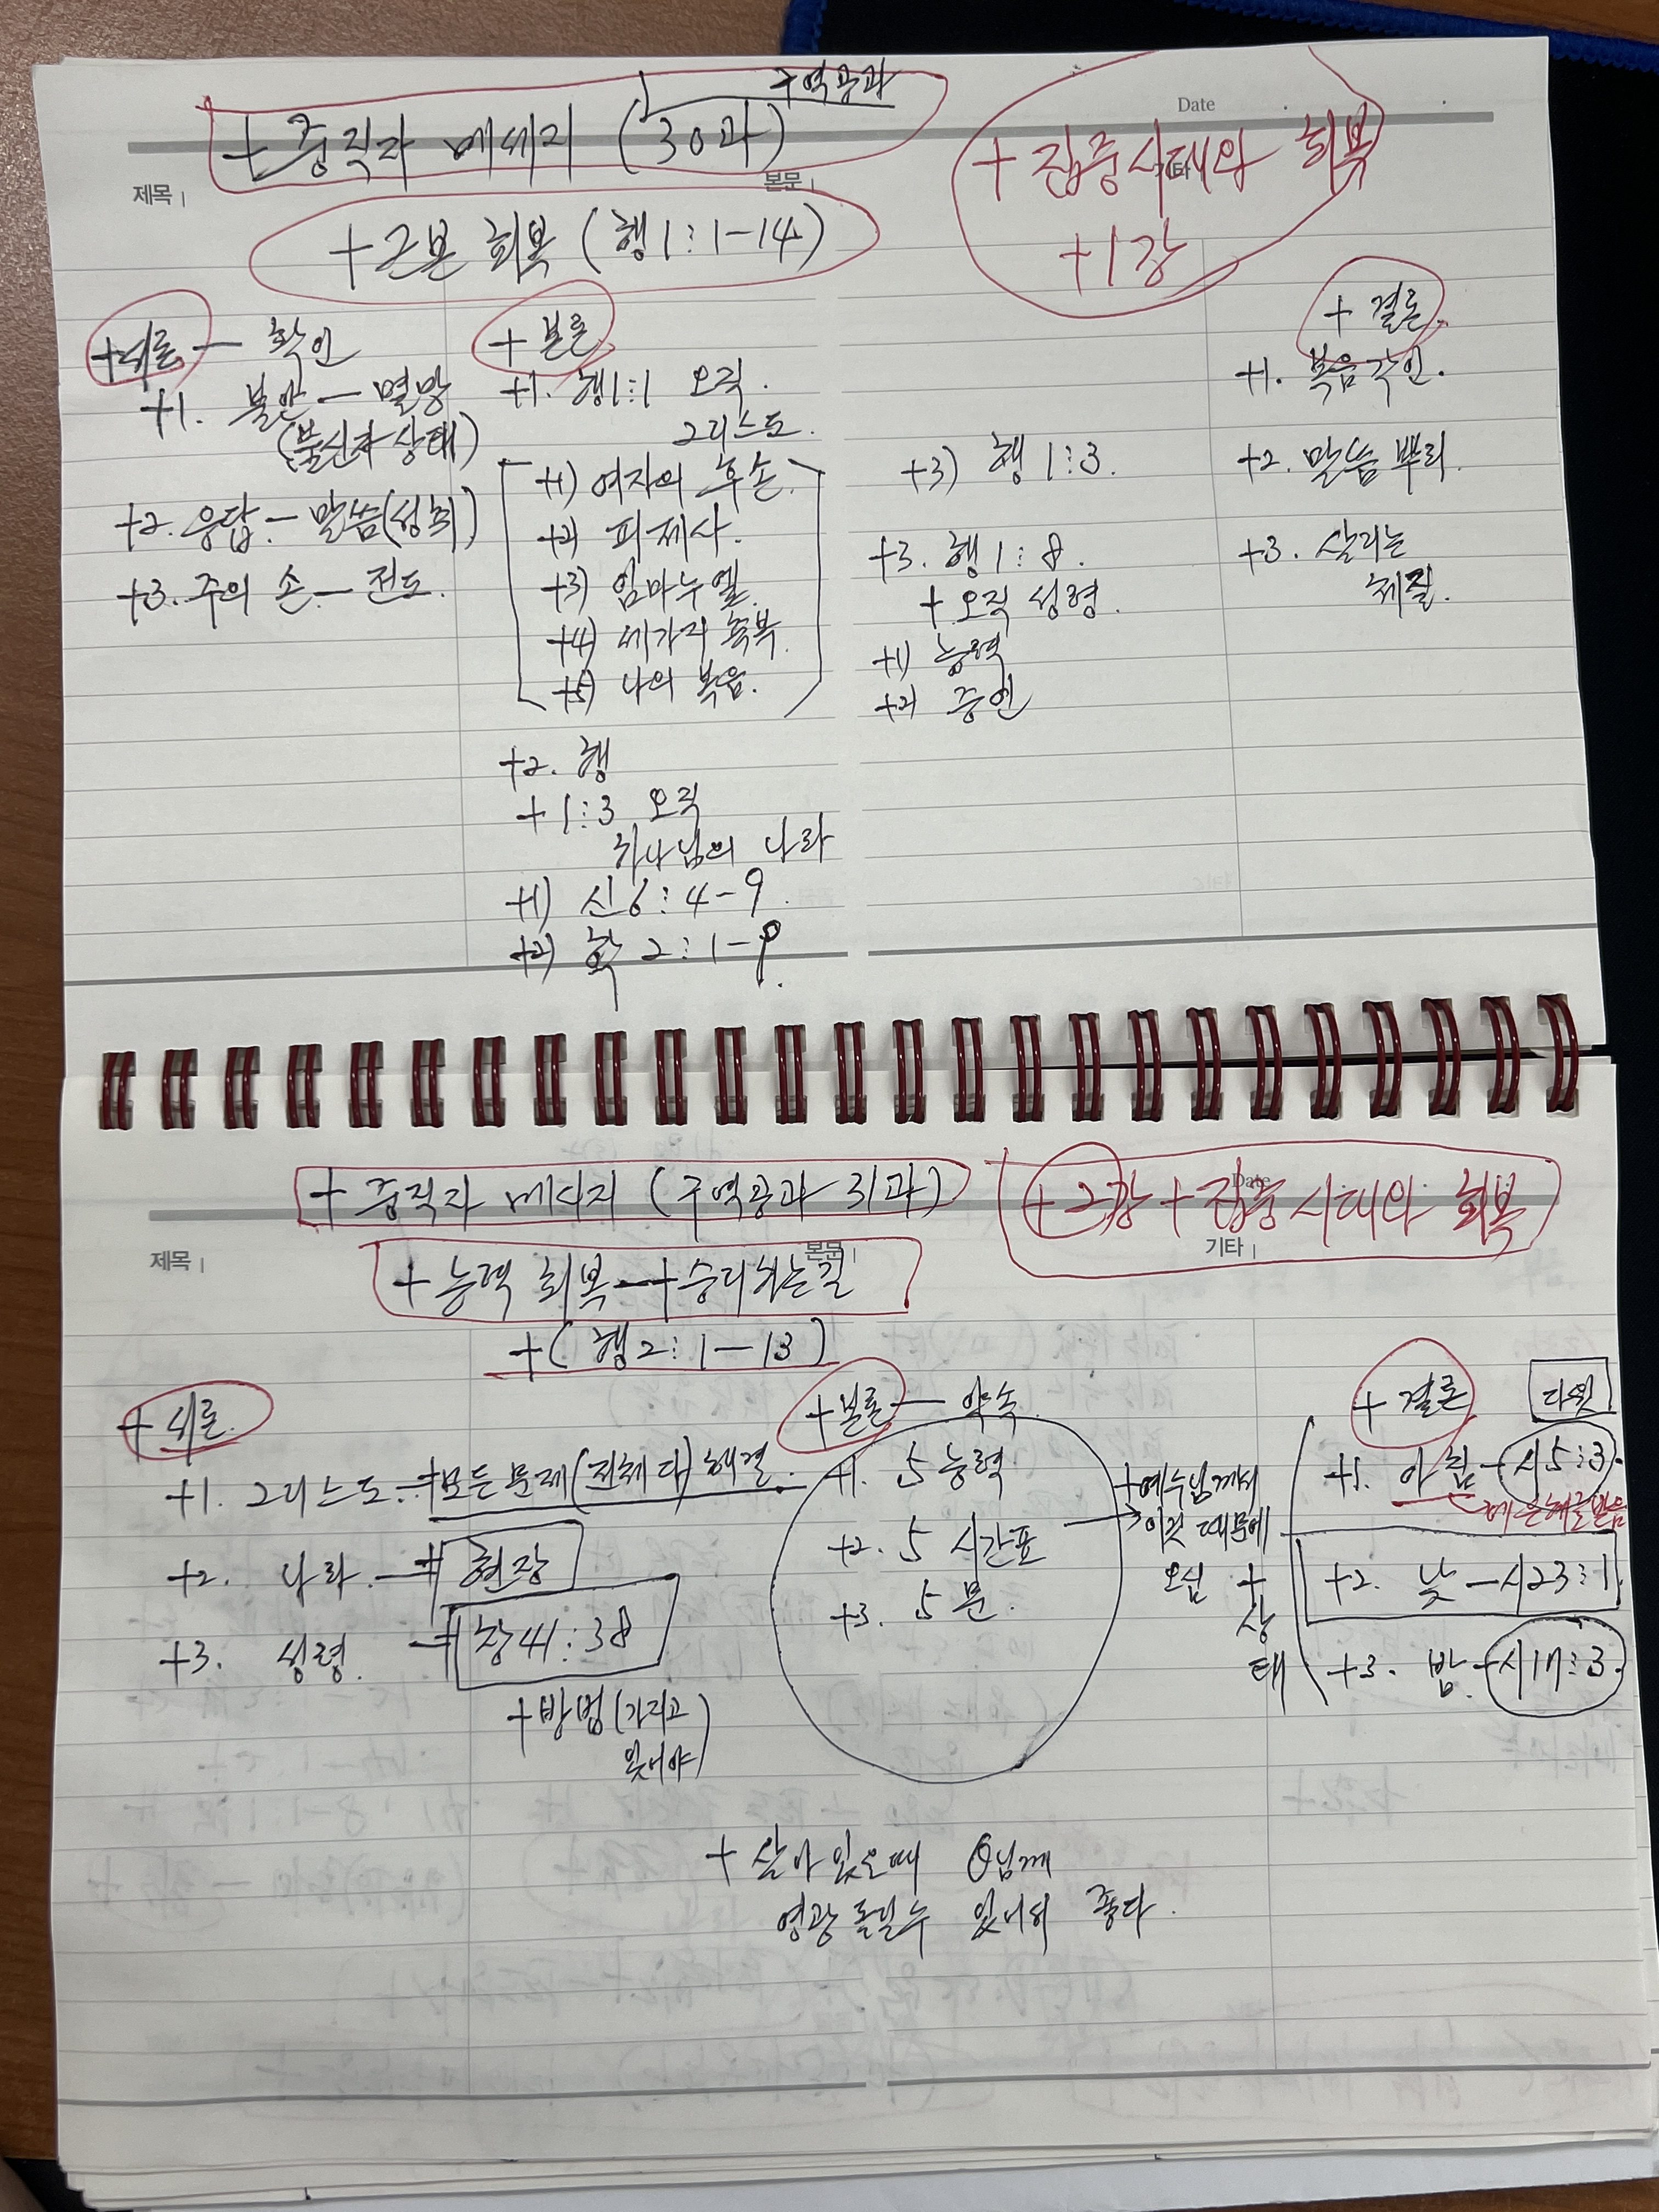 구역공과
+ 중직자 메세지 (30과)
Date
+ 집중시대와 회복
기타
+1강
제목 |
본문 |
+ 근본 회복 (행1:1-14)
+서론 - 확인
+1. 불안 - 멸망
(불신자 상태)
+2. 응답 - 말씀(성취)
+3. 주의 손 - 전도.
+ 본론
+1. 행1:1 오직.
그리스도.
+1) 여자의 후손.
+2) 피제사.
+3) 임마누엘.
+4) 세가지 축복.
+5) 나의 복음.
+2. 행
+ 1:3 오직
하나님의 나라
+1) 신6:4-9.
+2) 학 2:1-9.
+3) 행 1:3.
+3. 행 1:8.
+ 오직 성령.
+1) 능력
+2) 증인
+ 결론.
+1. 복음각인.
+2. 말씀 뿌리.
+3. 살리는
체질.
+ 중직자 메시지 (구역공과 31과)
Date
+2강 + 집중시대와 회복
제목 |
본문 |
기타 |
+ 능력 회복 - + 승리하는길
+ (행2:1-13)
+ 서론.
+1. 그리스도. + 모든문제(전체다)해결.
+2. 나라. - + 현장
+3. 성령. - + 창41:38
+방법(가지고
있어야)
+본론 - 약속.
+1. 5 능력.
+2. 5 시간표
+3. 5 문.
+예수님께서
이것 때문에
오심 +
상
태
+ 결론
다윗
+1. 아침 - 시5:3.
에 은혜를받음
+2. 낮 - 시23:1.
+3. 밤. - 시17:3.
+ 살아있을때 θ님께
영광 돌릴수 있어서 좋다.